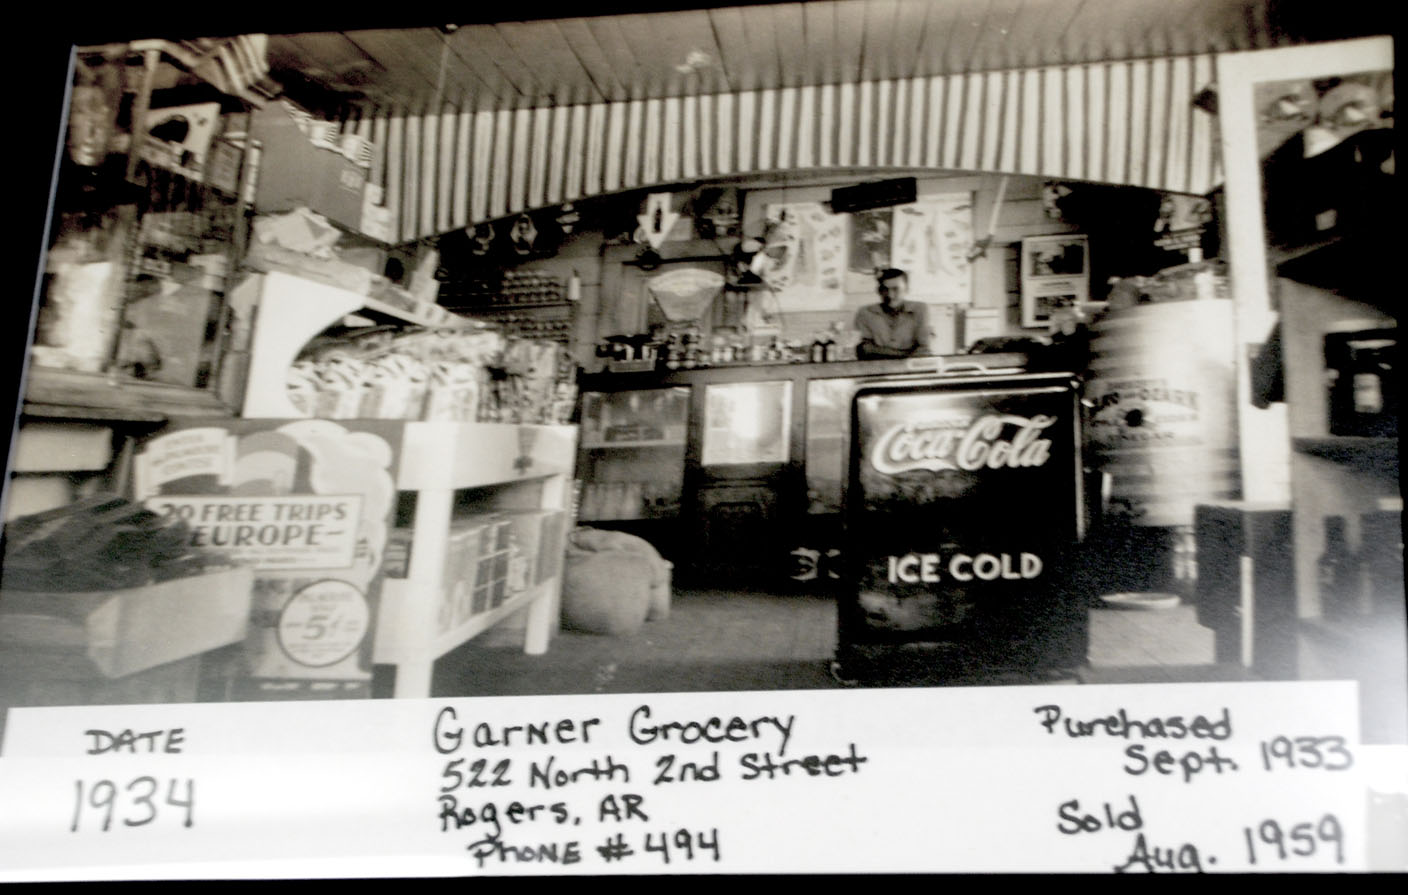 Coca-Cola
ICE COLD
20 FREE TRIPS
EUROPE-
5¢
OZARK
DATE
1934
Garner Grocery
522 North 2nd Street
Rogers, AR
PHONE # 494
Purchased
Sept. 1933
Sold
Aug. 1959